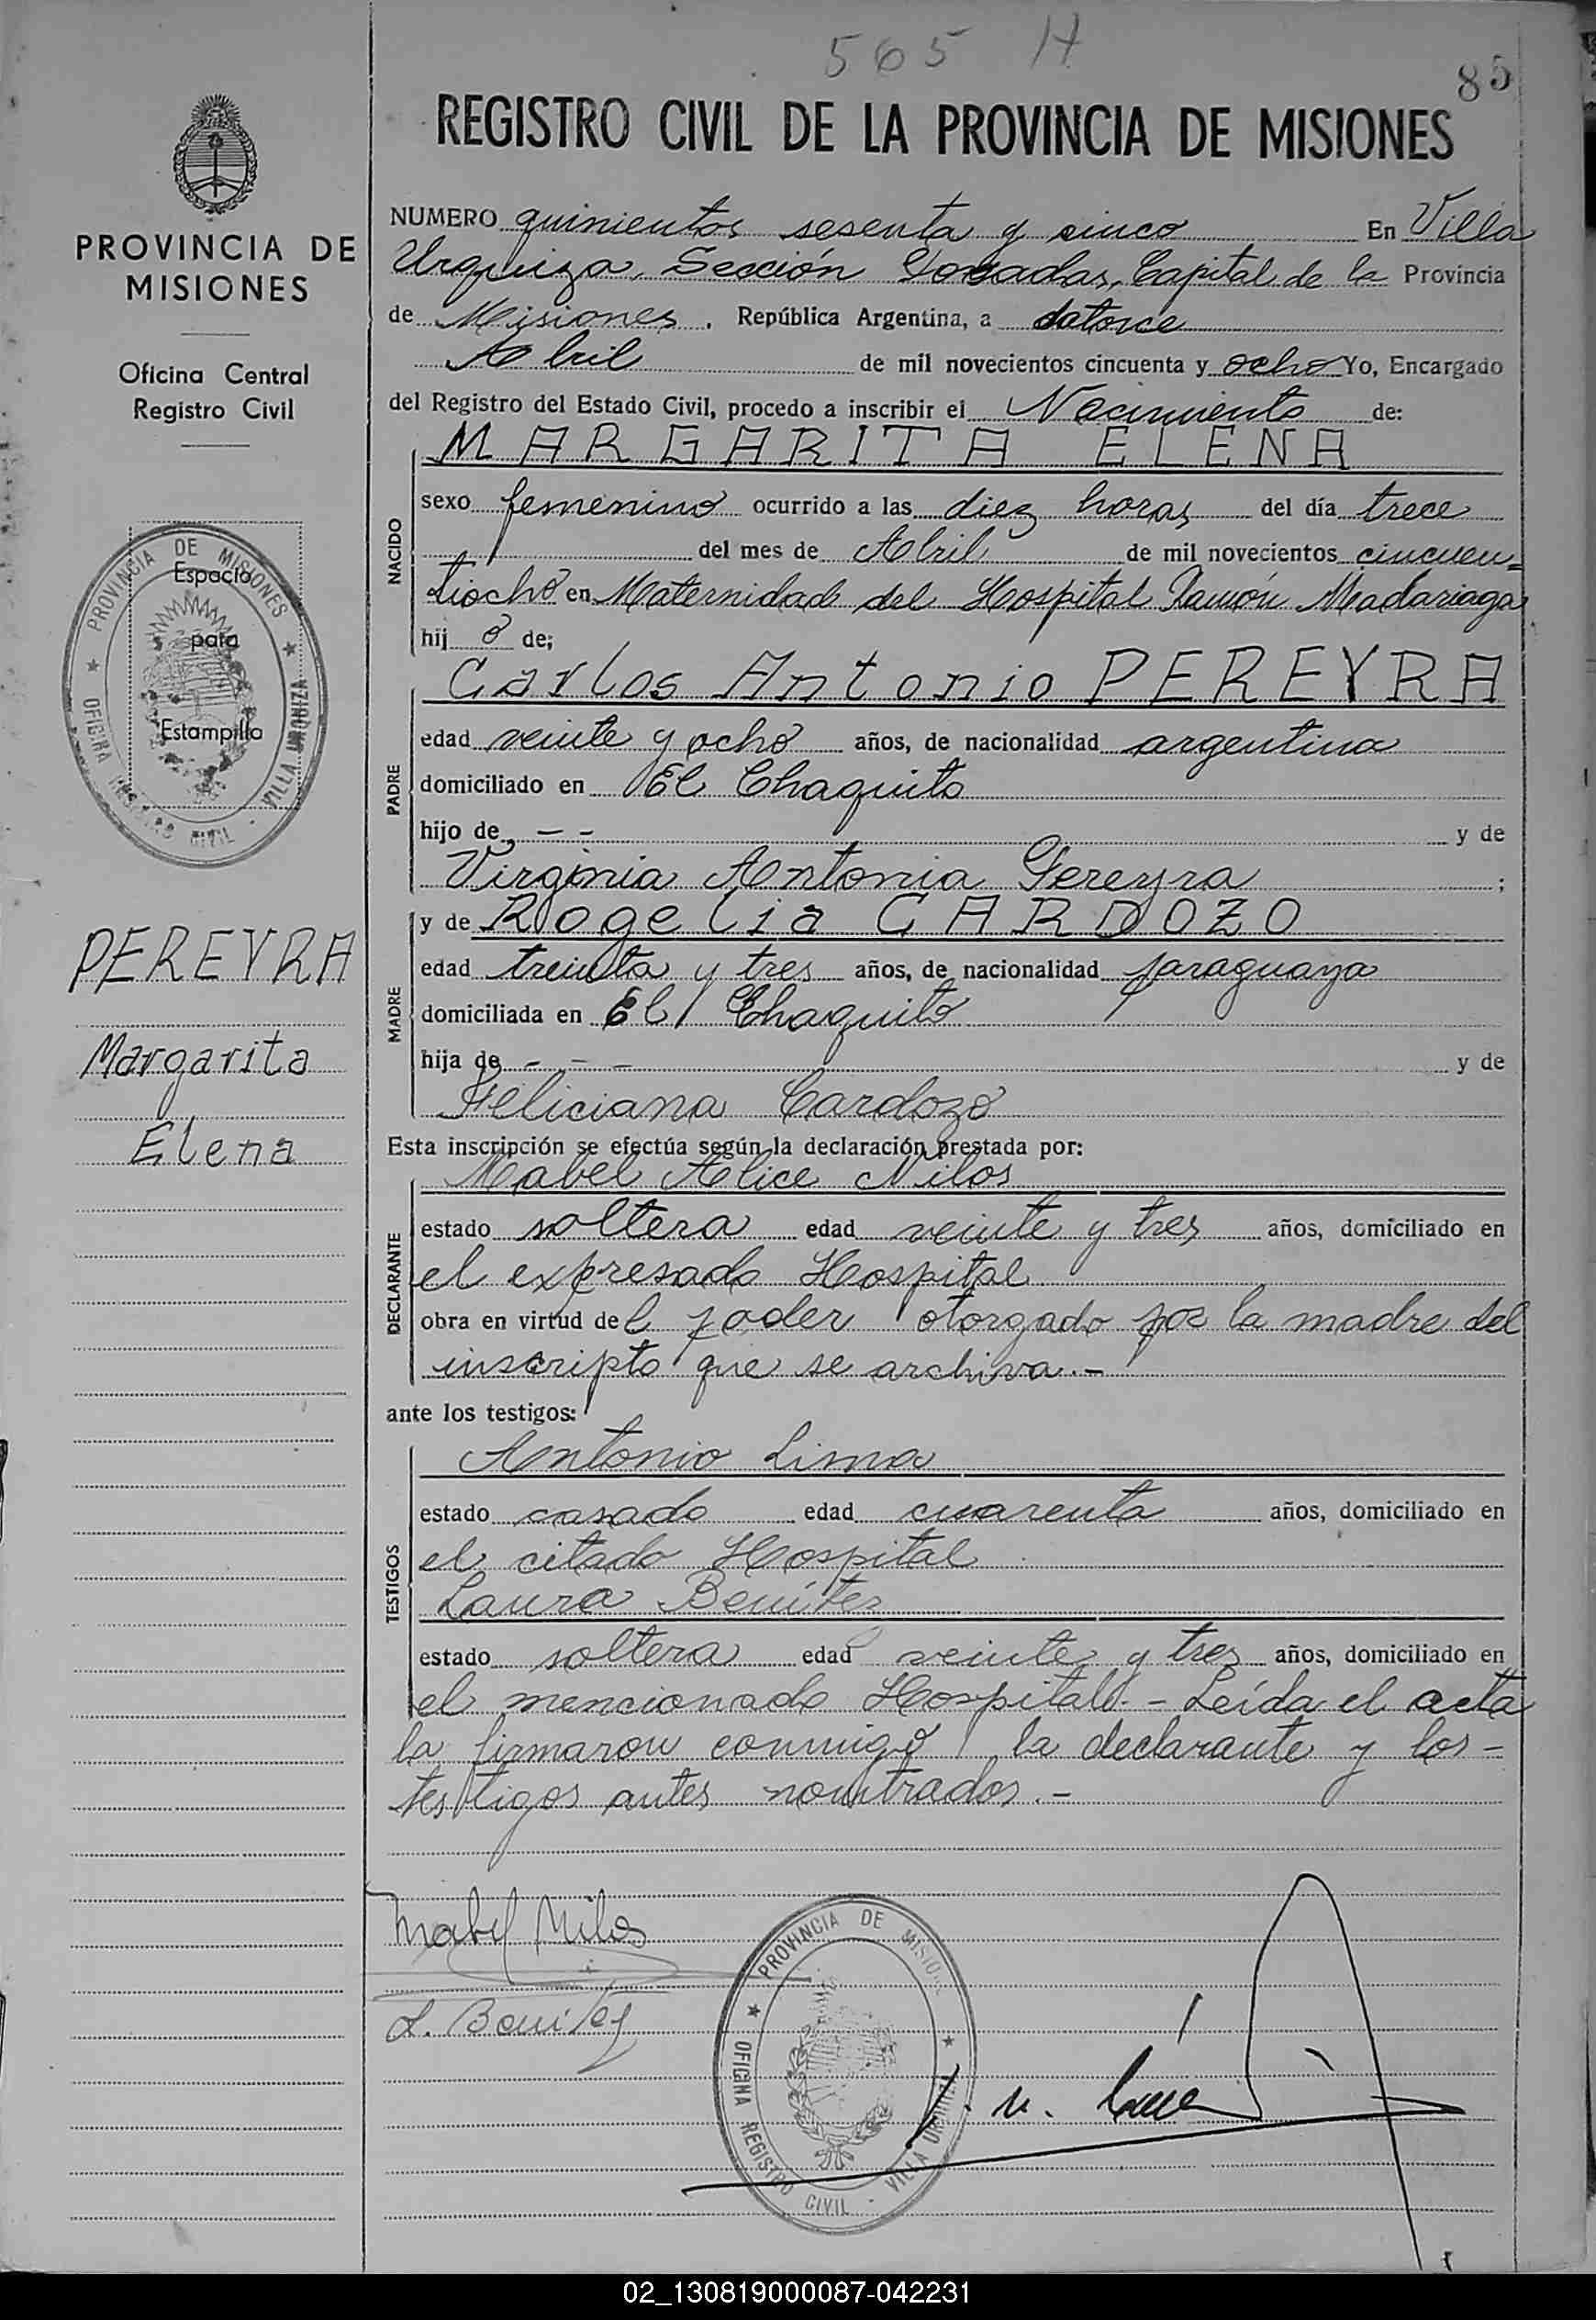 565 H
85
REGISTRO CIVIL DE LA PROVINCIA DE MISIONES
PROVINCIA DE
MISIONES
Oficina Central
Registro Civil
PROVINCIA DE MISIONES
Espacio
para
Estampilla
OFICINA REGISTRO CIVIL - VILLA URQUIZA
PEREYRA
Margarita
Elena
NUMERO quinientos sesenta y cinco En Villa
Urquiza, Sección Posadas, Capital de la Provincia
de Misiones. República Argentina, a catorce
Abril de mil novecientos cincuenta y ocho Yo, Encargado
del Registro del Estado Civil, procedo a inscribir el Nacimiento de:
MARGARITA ELENA
NACIDO
sexo femenino ocurrido a las diez horas del día trece
del mes de Abril de mil novecientos cincuen=
tiocho en Maternidad del Hospital Ramón Madariaga
hij o de;
Carlos Antonio PEREYRA
PADRE
edad veinte y ocho años, de nacionalidad argentina
domiciliado en El Chaquito
hijo de - - y de
Virginia Antonia Pereyra ;
y de Rogelia CARDOZO
MADRE
edad treinta y tres años, de nacionalidad paraguaya
domiciliada en El Chaquito
hija de - - - y de
Feliciana Cardozo
Esta inscripción se efectúa según la declaración prestada por:
Mabel Alice Nilos
DECLARANTE
estado soltera edad veinte y tres años, domiciliado en
el expresado Hospital
obra en virtud del poder otorgado por la madre del
inscripto que se archiva.-
ante los testigos:
Antonio Lima
TESTIGOS
estado casado edad cuarenta años, domiciliado en
el citado Hospital
Laura Benítez
estado soltera edad veinte y tres años, domiciliado en
el mencionado Hospital.- Leída el acta
la firmaron conmigo la declarante y los-
testigos antes nombrados.-
Mabel Nilos
L. Benítez
PROVINCIA DE MISIONES
OFICINA REGISTRO CIVIL - VILLA URQUIZA
02_130819000087-042231